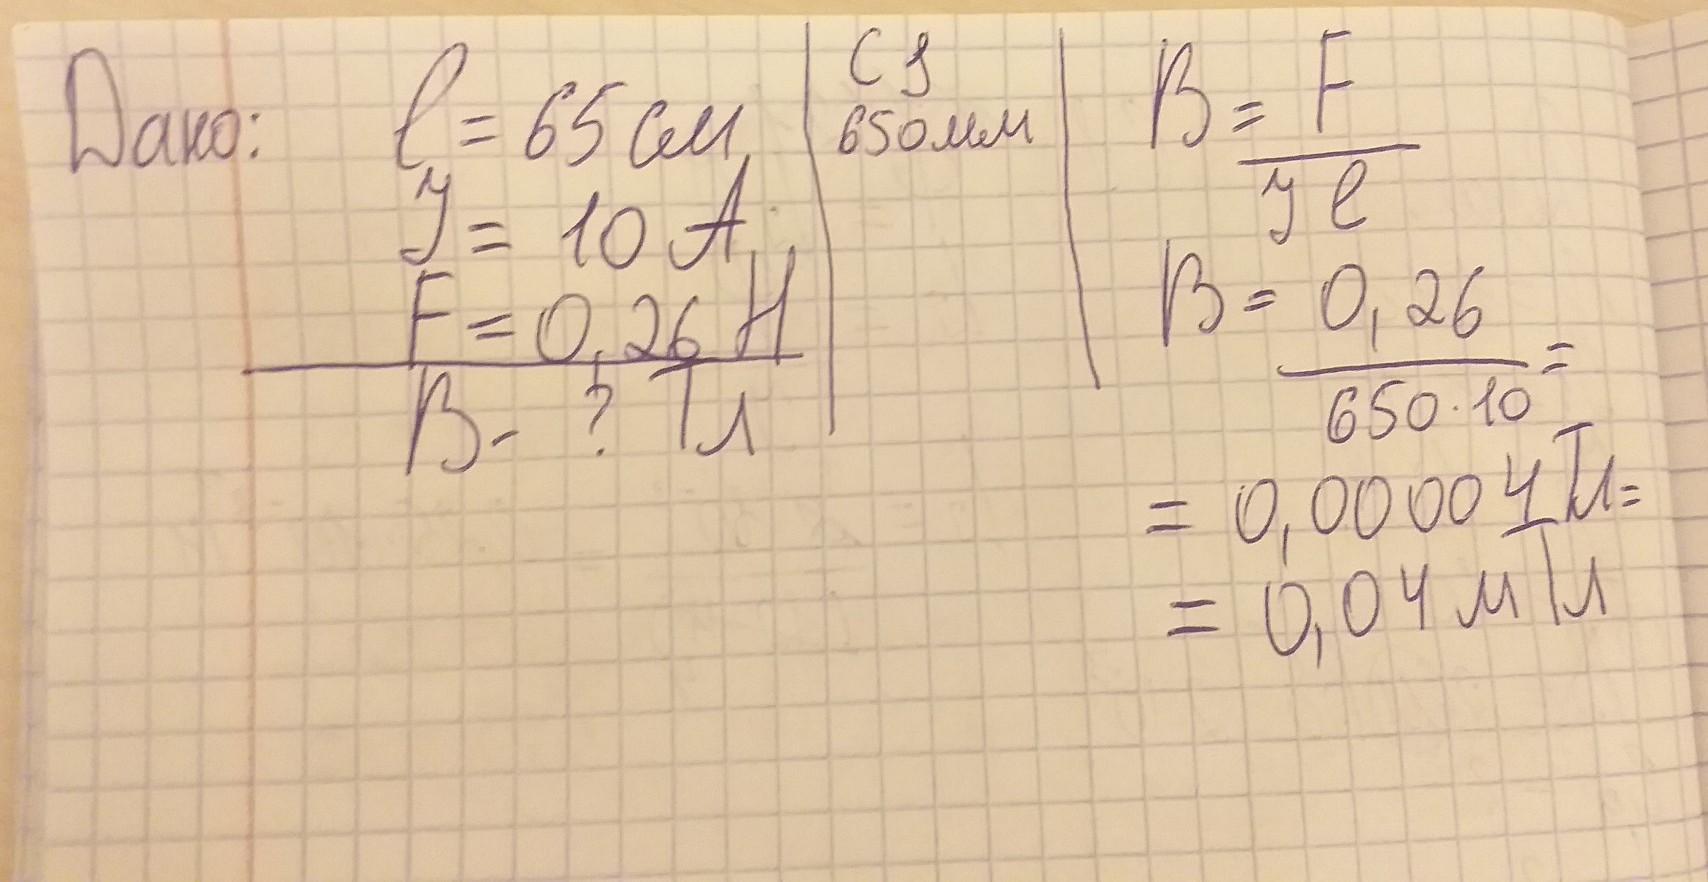 Дано: l = 65 см
J = 10 А
F = 0,26 Н
B - ? Тл
СJ
650мм
B = F
J l
B = 0,26
650·10 =
= 0,00004 Тл =
= 0,04 мТл